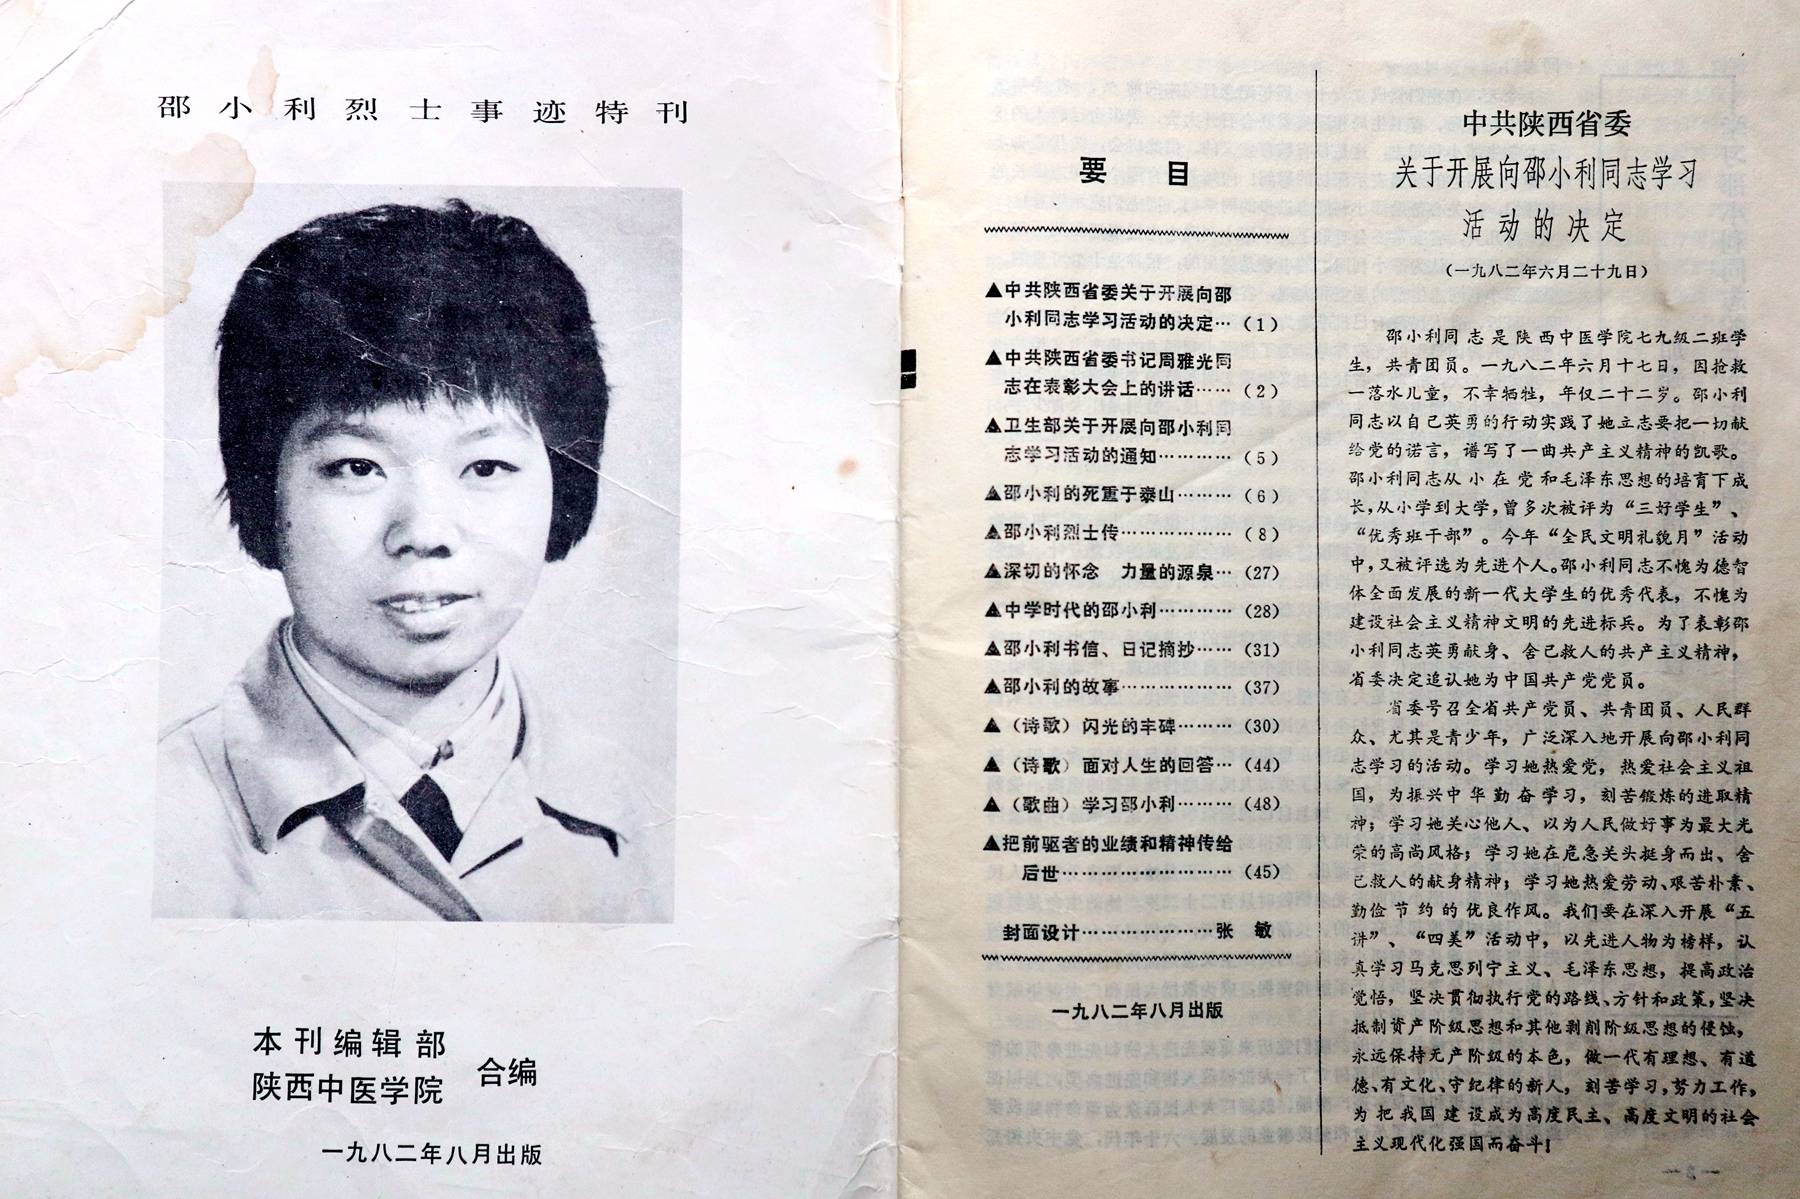 邵小利烈士事迹特刊
本刊编辑部
陕西中医学院
合编
一九八二年八月出版
要 目
▲中共陕西省委关于开展向邵
小利同志学习活动的决定…（1）
▲中共陕西省委书记周雅光同
志在表彰大会上的讲话……（2）
▲卫生部关于开展向邵小利同
志学习活动的通知…………（5）
▲邵小利的死重于泰山………（6）
▲邵小利烈士传………………（8）
▲深切的怀念 力量的源泉…（27）
▲中学时代的邵小利…………（28）
▲邵小利书信、日记摘抄……（31）
▲邵小利的故事………………（37）
▲（诗歌）闪光的丰碑………（30）
▲（诗歌）面对人生的回答…（44）
▲（歌曲）学习邵小利………（48）
▲把前驱者的业绩和精神传给
后世………………………（45）
封面设计…………………张 敏
一九八二年八月出版
中共陕西省委
关于开展向邵小利同志学习
活动的决定
（一九八二年六月二十九日）
邵小利同志是陕西中医学院七九级二班学
生，共青团员。一九八二年六月十七日，因抢救
一落水儿童，不幸牺牲，年仅二十二岁。邵小利
同志以自己英勇的行动实践了她立志要把一切献
给党的诺言，谱写了一曲共产主义精神的凯歌。
邵小利同志从小在党和毛泽东思想的培育下成
长，从小学到大学，曾多次被评为“三好学生”、
“优秀班干部”。今年“全民文明礼貌月”活动
中，又被评选为先进个人。邵小利同志不愧为德智
体全面发展的新一代大学生的优秀代表，不愧为
建设社会主义精神文明的先进标兵。为了表彰邵
小利同志英勇献身、舍己救人的共产主义精神，
省委决定追认她为中国共产党党员。
省委号召全省共产党员、共青团员、人民群
众、尤其是青少年，广泛深入地开展向邵小利同
志学习的活动。学习她热爱党，热爱社会主义祖
国，为振兴中华勤奋学习，刻苦锻炼的进取精
神；学习她关心他人、以为人民做好事为最大光
荣的高尚风格；学习她在危急关头挺身而出、舍
己救人的献身精神；学习她热爱劳动、艰苦朴素、
勤俭节约的优良作风。我们要在深入开展“五
讲”、“四美”活动中，以先进人物为榜样，认
真学习马克思列宁主义、毛泽东思想，提高政治
觉悟，坚决贯彻执行党的路线、方针和政策，坚决
抵制资产阶级思想和其他剥削阶级思想的侵蚀，
永远保持无产阶级的本色，做一代有理想、有道
德、有文化、守纪律的新人，刻苦学习，努力工作，
为把我国建设成为高度民主、高度文明的社会
主义现代化强国而奋斗！